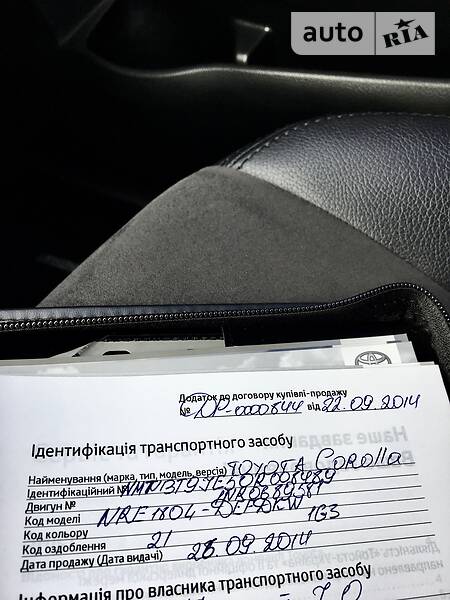 auto RIA
Додаток до договору купівлі-продажу
№ DP-0000844 від 22.09.2014
Ідентифікація транспортного засобу
Найменування (марка, тип, модель, версія) TOYOTA Corolla
Ідентифікаційний
Двигун №
Код моделі NRE180L-DEFDKW
Код кольору 1G3
Код оздоблення 21
Дата продажу (Дата видачі) 26.09.2014
Інформація про власника транспортного засобу